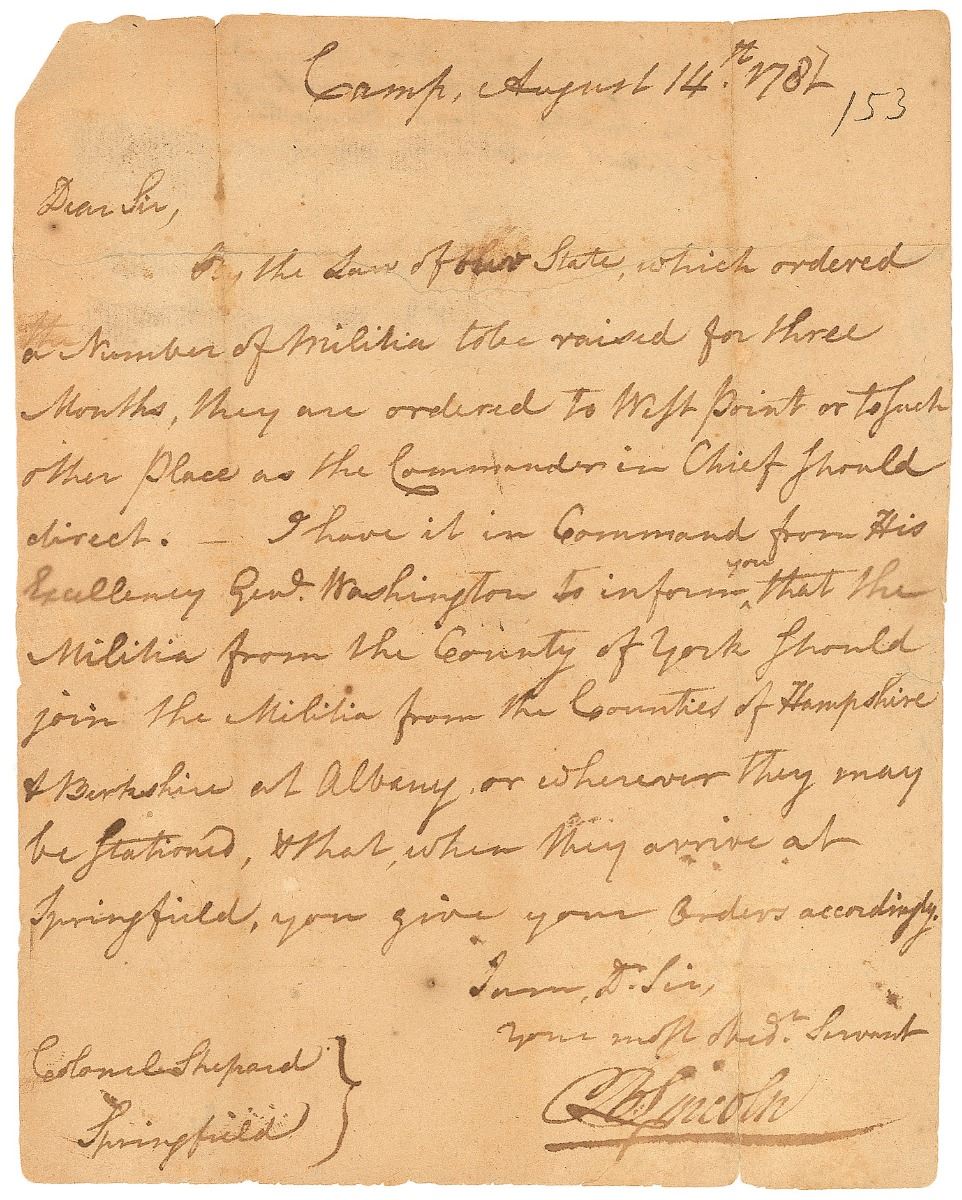 Camp, August 14.th 1781
153
Dear Sir,
By the Law of our State, which ordered
a Number of Militia to be raised for three
Months, they are ordered to West Point or to such
other Place as the Commander in Chief should
direct. — I have it in Command from His
Excellency Genl. Washington to inform you, that the
Militia from the County of York should
join the Militia from the Counties of Hampshire
& Berkshire at Albany, or wherever they may
be stationed, & that, when they arrive at
Springfield, you give your Orders accordingly.
I am, Dr. Sir,
your most obedt. Servant
B Lincoln
Colonel Shepard
Springfield